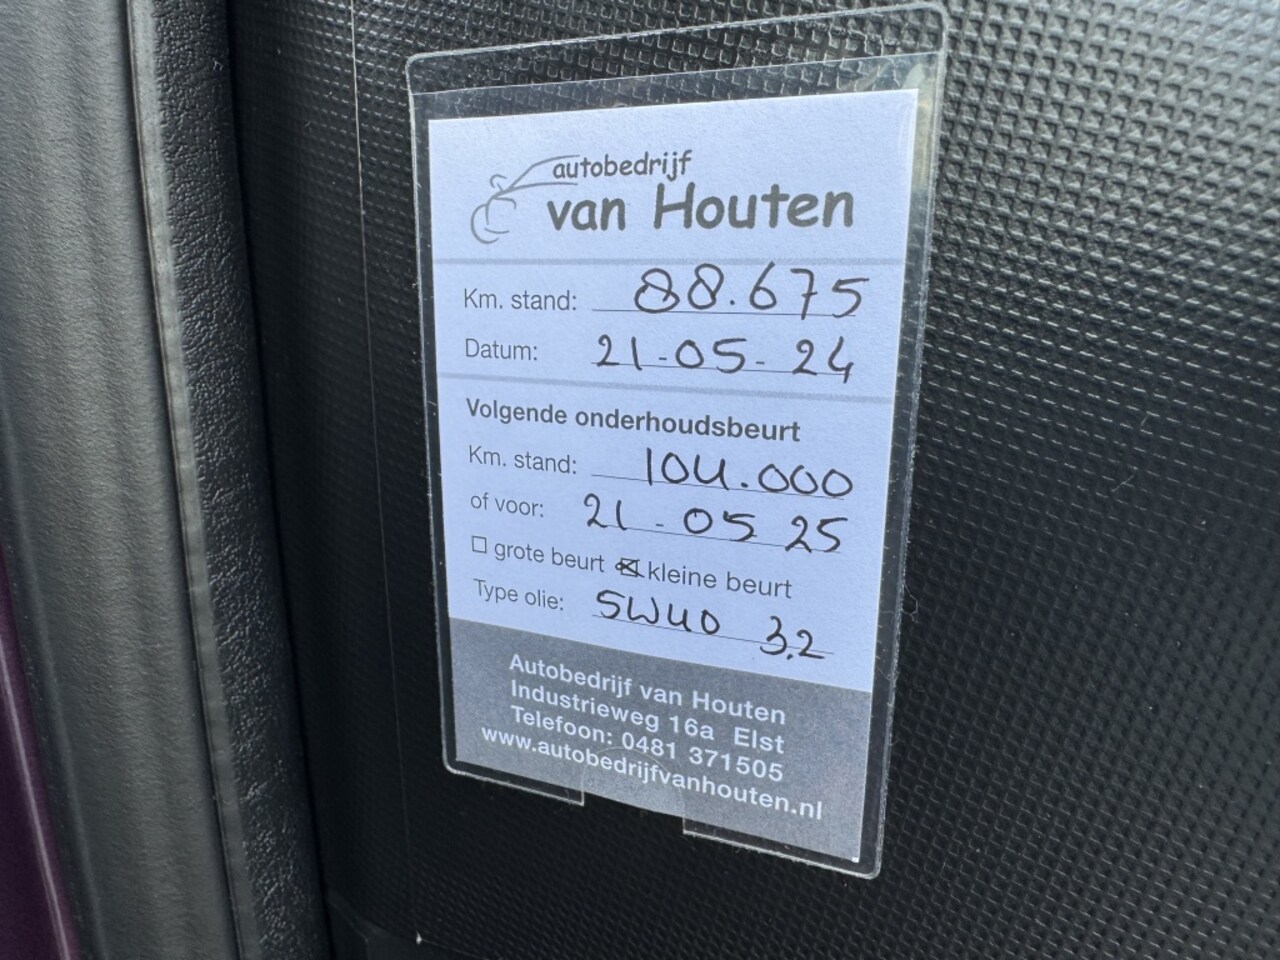 autobedrijf
van Houten
Km. stand: 88.675
Datum: 21-05-24
Volgende onderhoudsbeurt
Km. stand: 104.000
of voor: 21-05 25
☐ grote beurt ☒ kleine beurt
Type olie: 5W40 3.2
Autobedrijf van Houten
Industrieweg 16a Elst
Telefoon: 0481 371505
www.autobedrijfvanhouten.nl